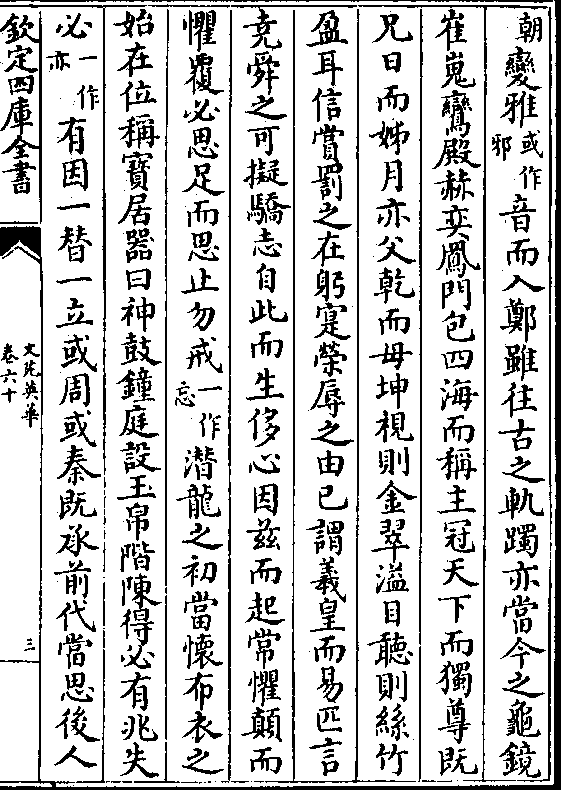 朝變雅或作邪音而入鄭雖往古之軌躅亦當今之龜鏡
崔嵬鸞殿赫奕鳳門包四海而稱主冠天下而獨尊既
兄日而姊月亦父乾而母坤視則金翠溢目聽則絲竹
盈耳信賞罰之在躬寔榮辱之由己謂羲皇而易匹言
堯舜之可擬驕志自此而生侈心因茲而起常懼顛而
懼覆必思足而思止勿戒一作忘潛龍之初當懷布衣之
始在位稱寶居器曰神鼓鐘庭設玉帛階陳得必有兆失
必一作亦有因一替一立或周或秦既承前代當思後人
欽定四庫全書
文苑英華
卷六十
三